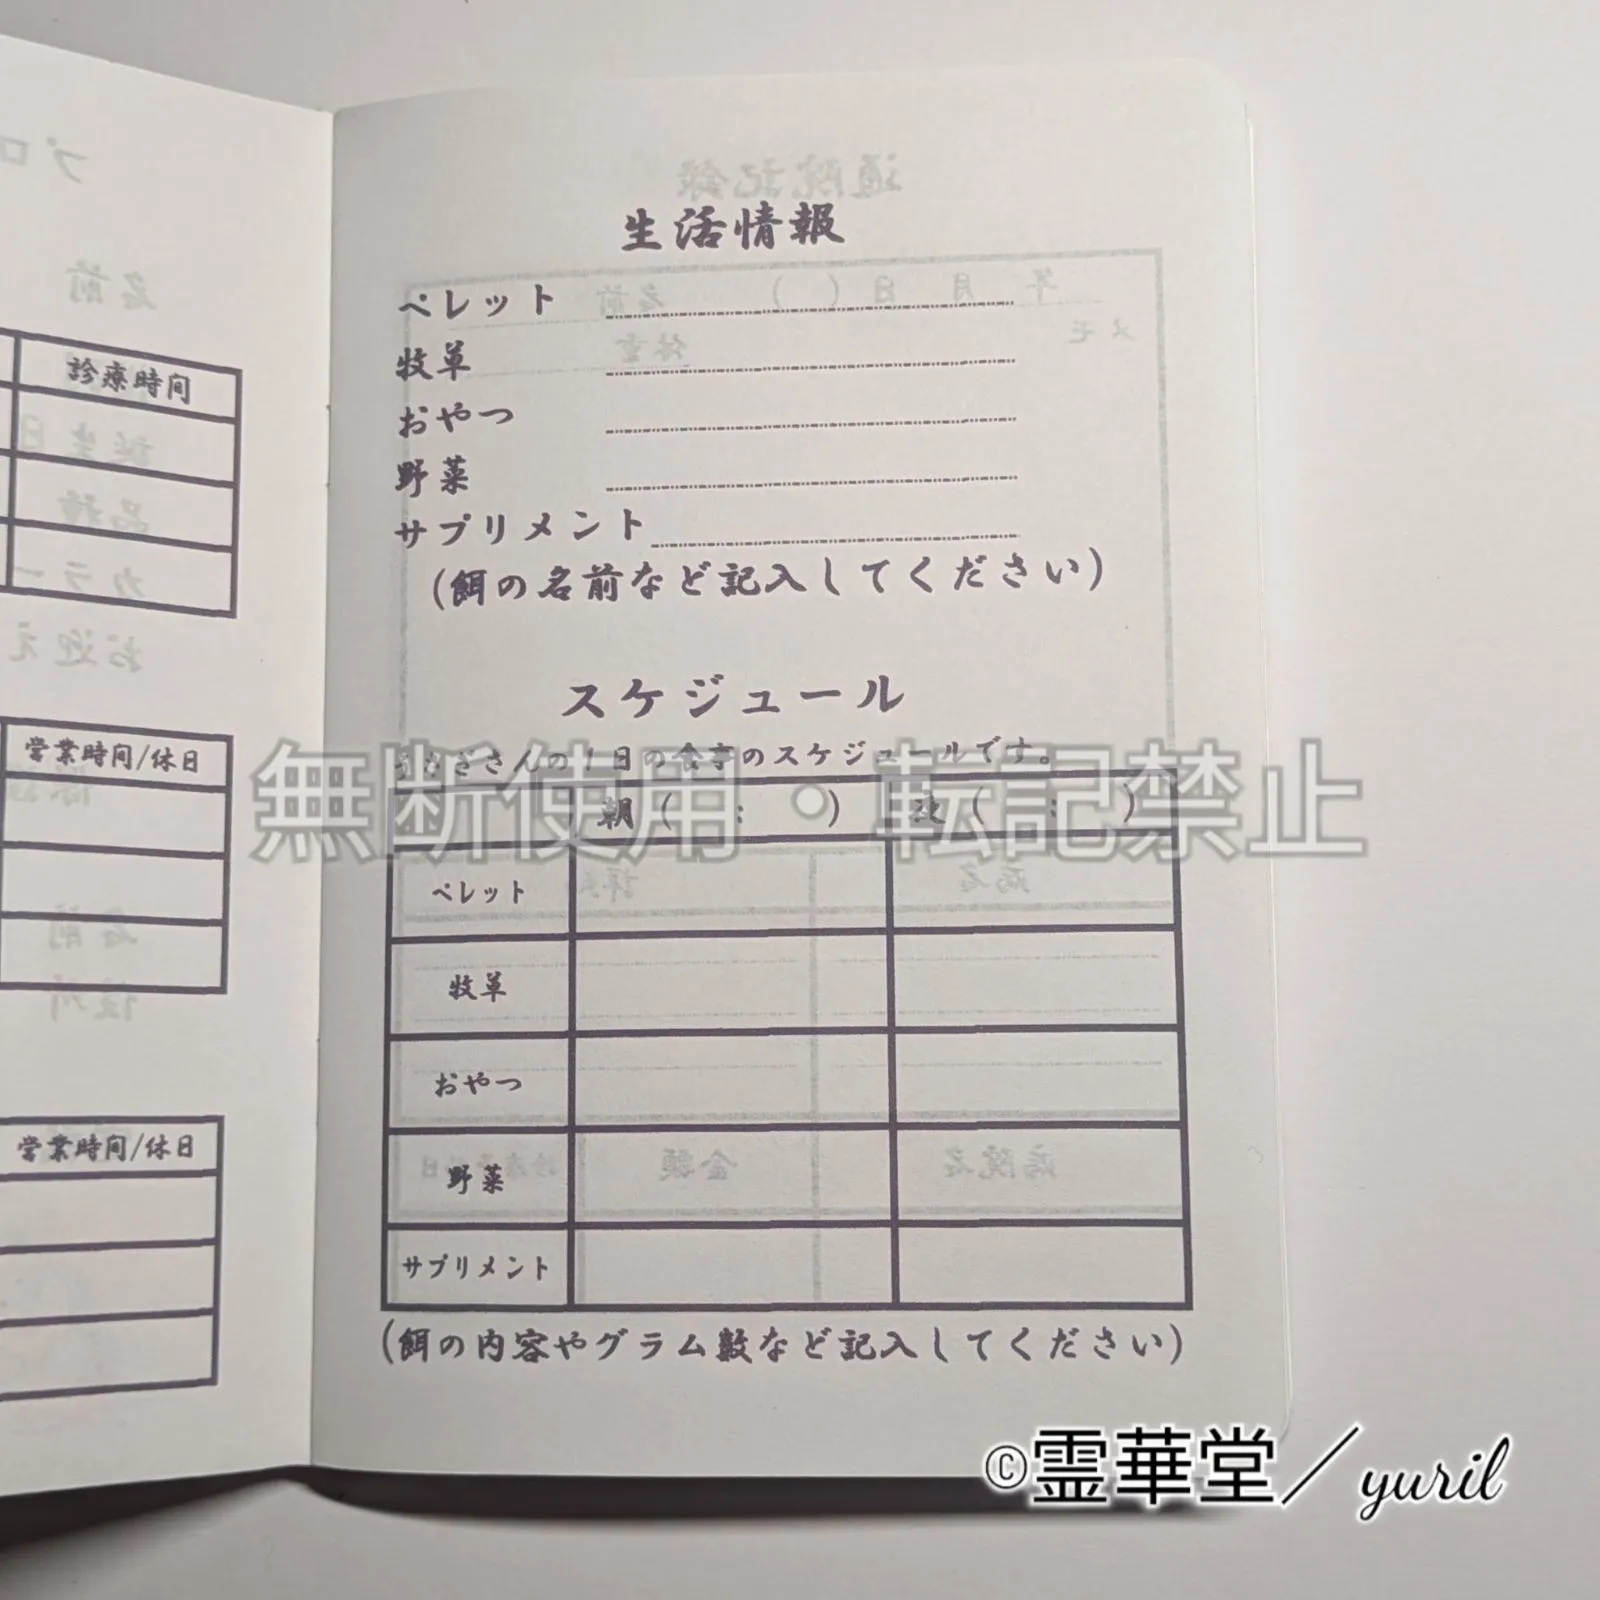 診療時間
営業時間/休日
営業時間/休日
生活情報
ペレット
牧草
おやつ
野菜
サプリメント
(餌の名前など記入してください)
スケジュール
うさぎさんの1日の食事のスケジュールです。
朝( : ) 夜( : )
ペレット
牧草
おやつ
野菜
サプリメント
(餌の内容やグラム数など記入してください)
無断使用・転記禁止
©霊華堂／yuril